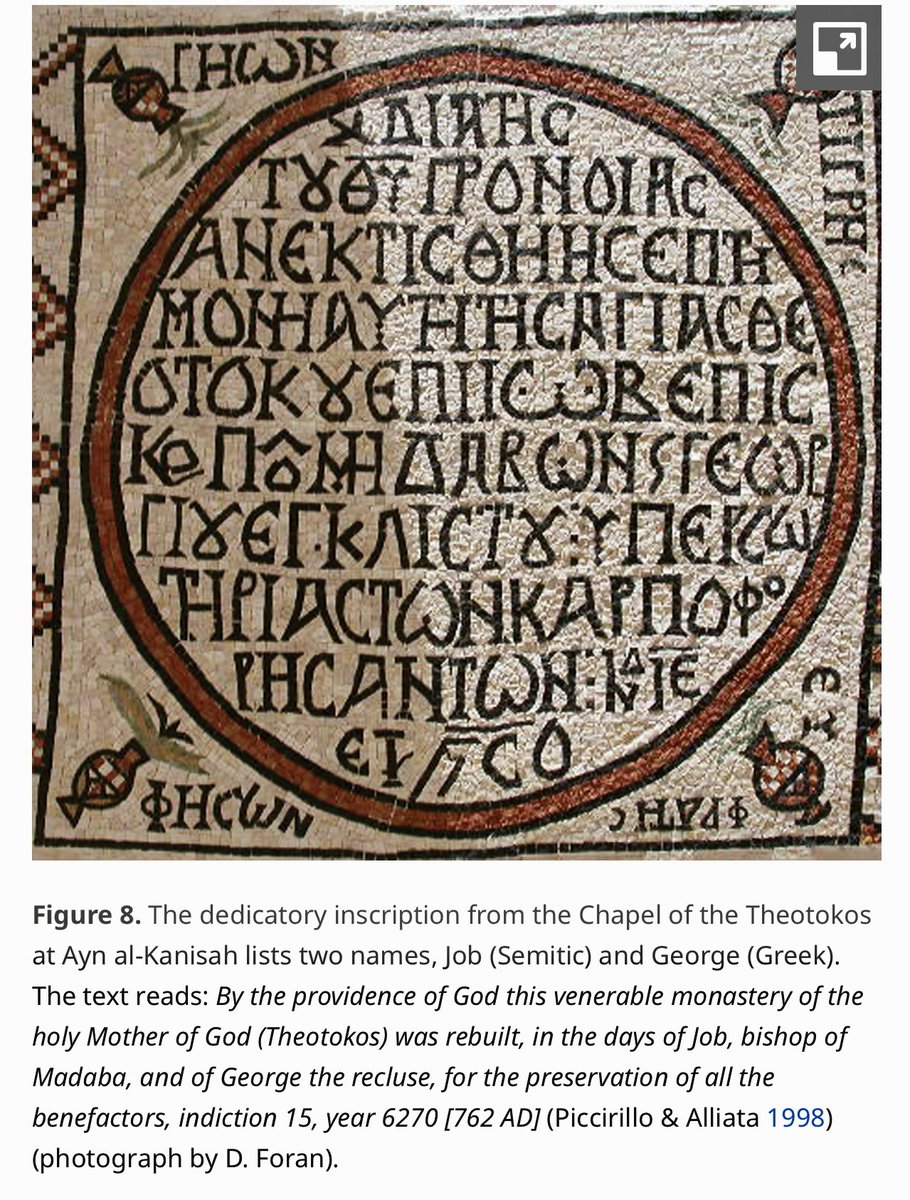 ΓΗΩΝ
ΤΙΓΡΗΣ
ΔΙΑΤΗC
ΤȢΘΥΠΡΟΝΟΙΑC
ΑΝΕΚΤΙCΘΗΗCΕΠΤΗ
ΜΟΝΗΑΥΤΗΤΗCΑΓΙΑCΘΕ
ΟΤΟΚȢΕΠΙΙΩΒΕΠΙC
ΜΗΔΑΒΩΝSΓΕΩΡ
ΓΙȢΕΓΚΛΙCΤȢΥΠΕΡCΩ
ΤΗΡΙΑCΤΩΝΚΑΡΠΟΦΟ
ΡΗCΑΝΤΩΝ
ΕΤ CΟ
ΕΥ
ΦΡΑΤΗC
ΦΗCΩΝ
Figure 8. The dedicatory inscription from the Chapel of the Theotokos
at Ayn al-Kanisah lists two names, Job (Semitic) and George (Greek).
The text reads: By the providence of God this venerable monastery of the
holy Mother of God (Theotokos) was rebuilt, in the days of Job, bishop of
Madaba, and of George the recluse, for the preservation of all the
benefactors, indiction 15, year 6270 [762 AD] (Piccirillo & Alliata 1998)
(photograph by D. Foran).